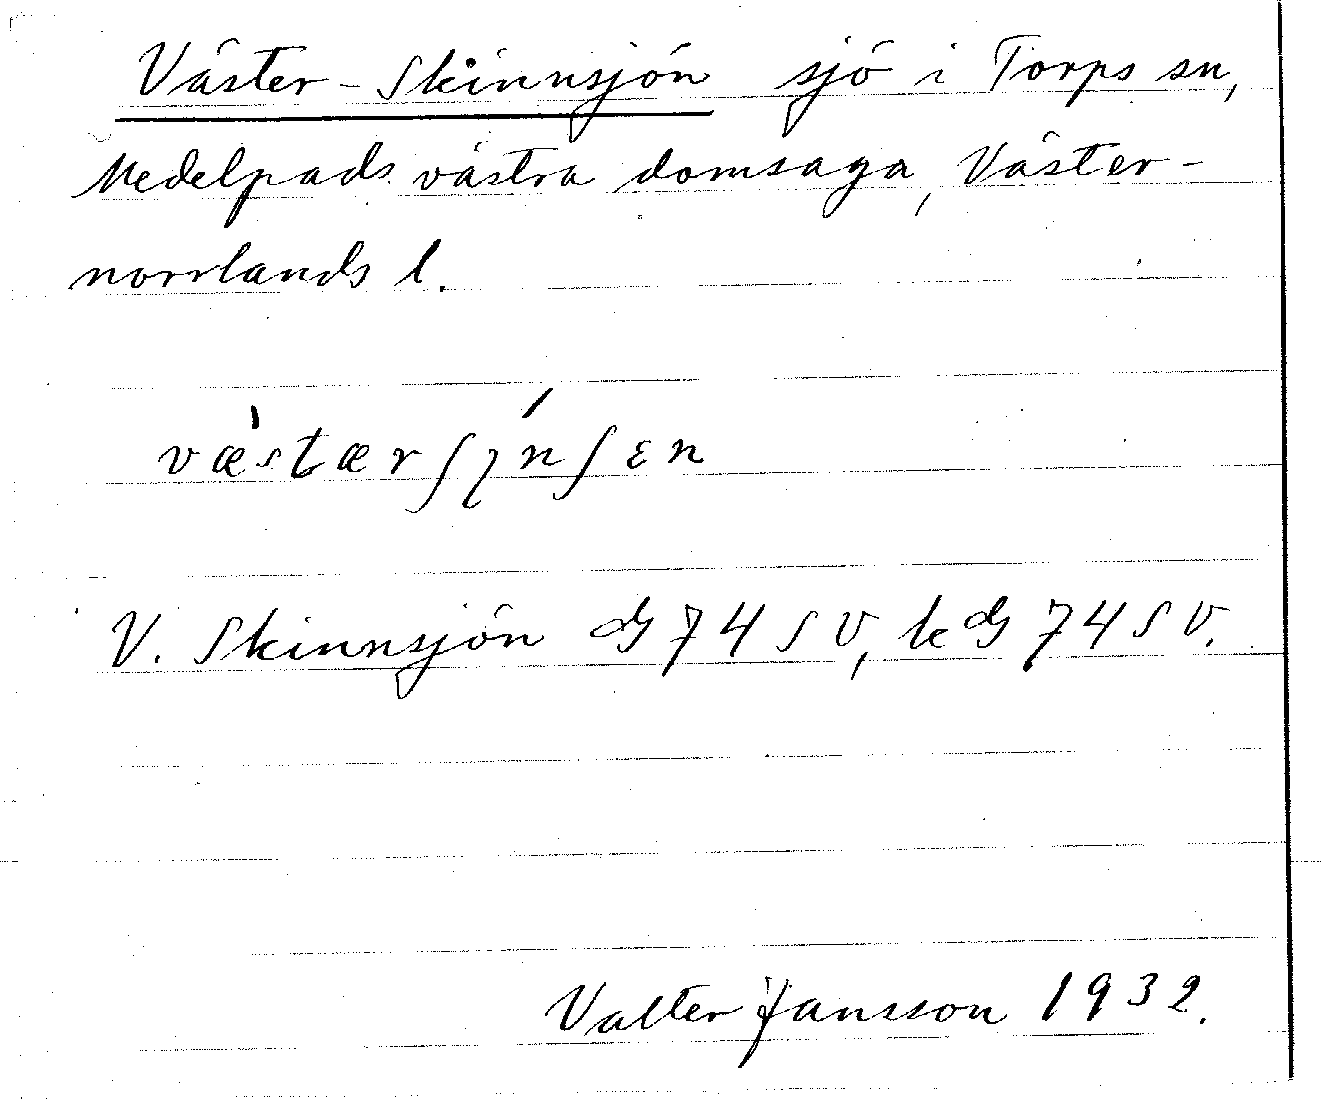 Väster-Skinnsjön sjö i Torps sn,
Medelpads västra domsaga, Väster-
norrlands l.
væ̀stærʃɩ́nʃɛn
V. Skinnsjön dG 74 SV, kdG 74 SV.
Valter Jansson 1932.